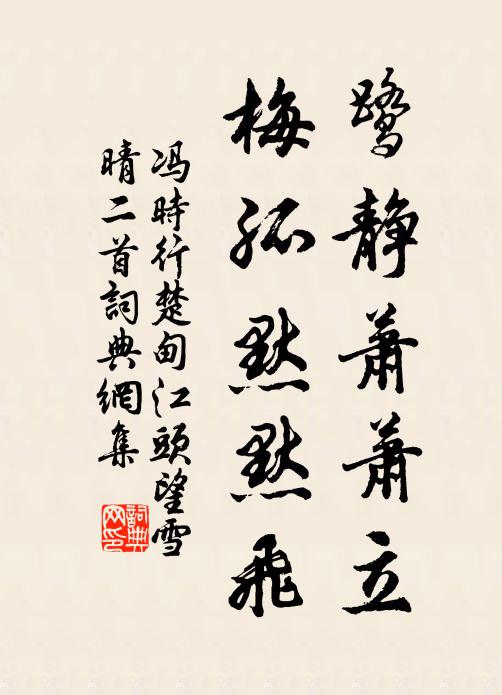 鹭静萧萧立
梅孤默默飛
冯時行楚甸江頭望雪
晴二首詞典網集
詞典
网印